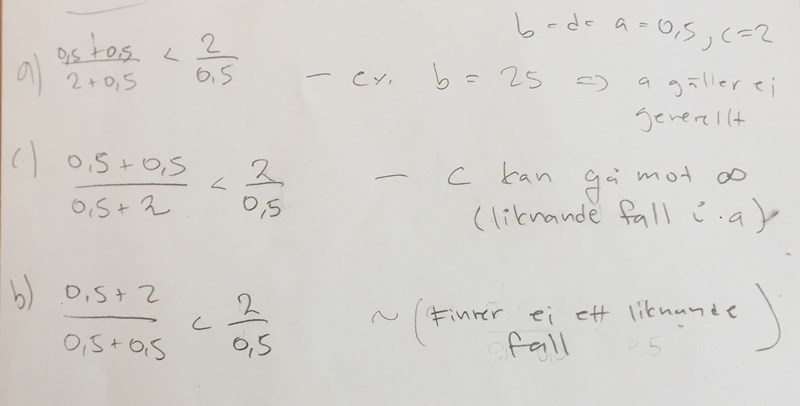 b=d= a=0,5, c=2
a) 0,5+0,5 / 2+0,5 < 2 / 0,5 — ex. b = 25 => a gäller ei
generellt
c) 0,5+0,5 / 0,5+2 < 2 / 0,5 — c kan gå mot ∞
(liknande fall i a)
b) 0,5+2 / 0,5+0,5 < 2 / 0,5 ~ (Finner ei ett liknande
fall)